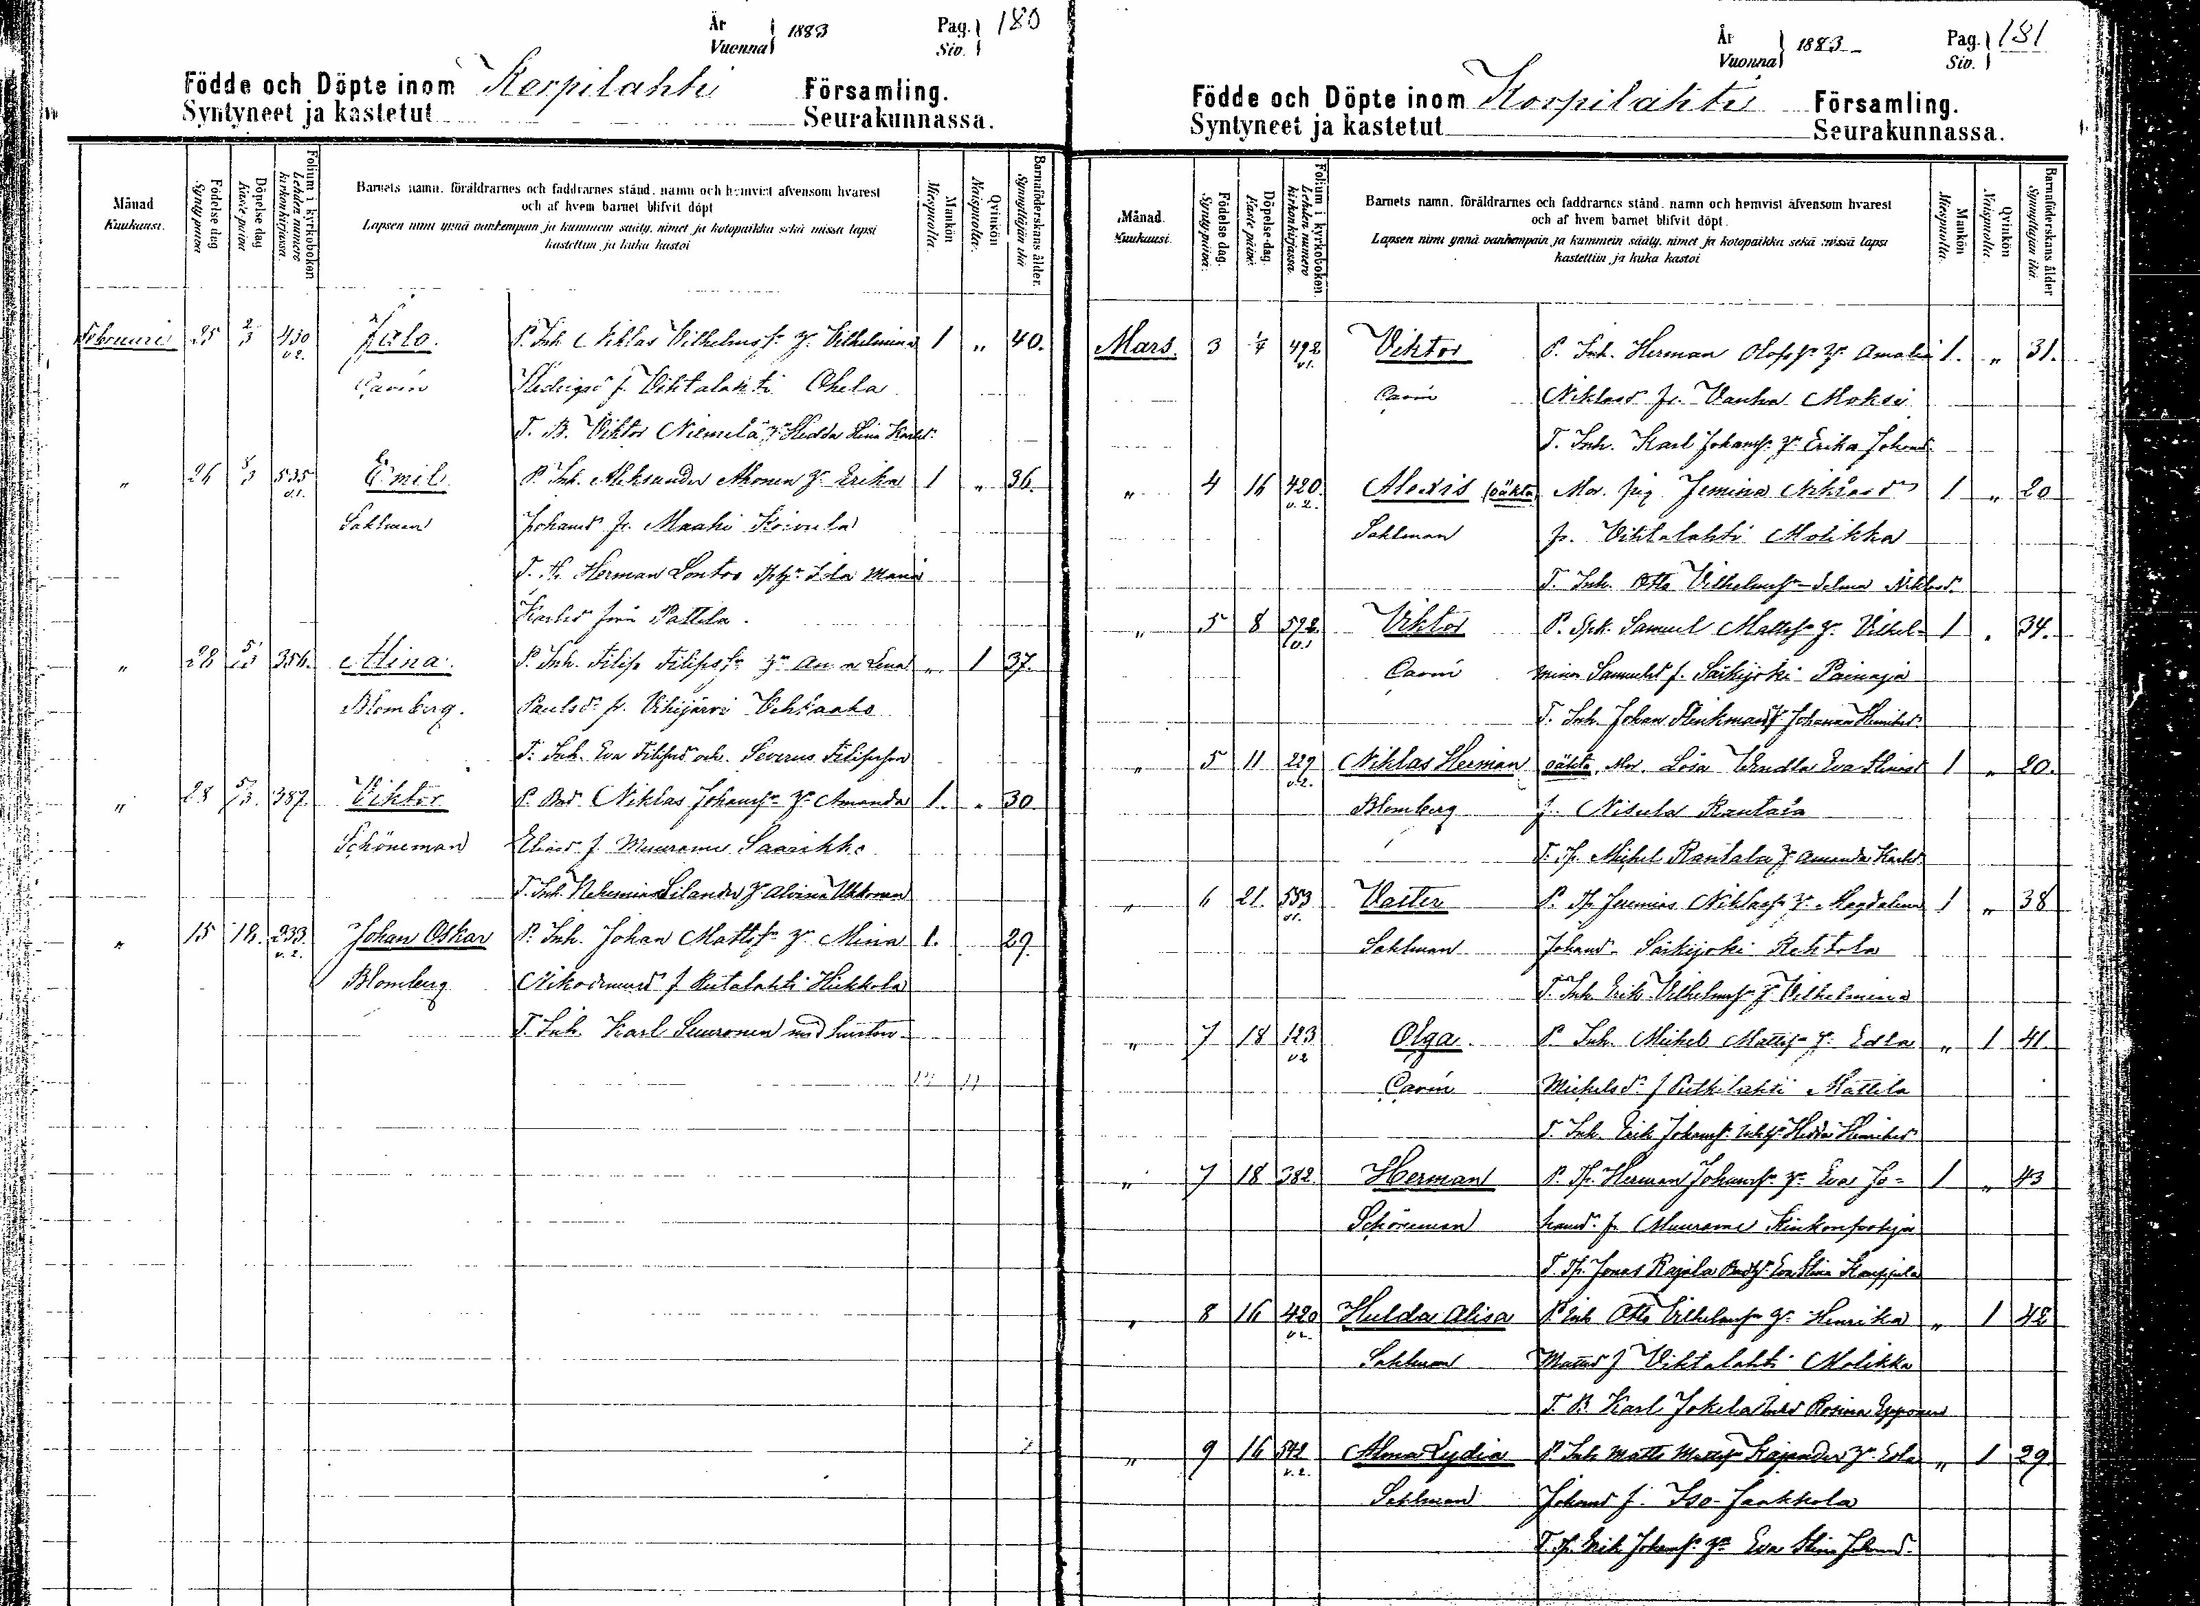 År
Vuonna
1883
Pag.
Siv.
180
Födde och Döpte inom
Syntyneet ja kastetut
Korpilahti
Församling.
Seurakunnassa.
Månad
Kuukausi.
Födelse dag
Synty-päivä
Döpelse dag
Kaste päivä
Folium i kyrkobokon
Lehden numero
kirkonkirjassa
Barnets namn, föräldrarnes och faddrarnes stånd, namn och hemvist äfvensom hvarest
och af hvem barnet blifvit döpt
Lapsen nimi ynnä vanhempain ja kummein sääty, nimet ja kotopaikka sekä missä lapsi
kastettiin ja kuka kastoi
Mankön
Miespuolta.
Qvinkön
Naispuolta.
Barnaföderskans ålder.
Synnyttäjän ikä
Februari 25 2/3 430 v.2. Jalo. P. Inh. Niklas Vilhelmss. h. Vilhelmina 1 " 40.
Cavén f. Vihtalahti Ohela
T. B. Viktor Niemelä h. Hedda Lina Karlsd.
" 26 5/3 535 v.1. Emil P. Inh. Aleksander Ahonen h. Erika 1 " 36.
Sahlman Johansd. fr. Maahi Koivula
T. Th. Herman Lontoo Ida Maria
Karlsd. från Pattila.
" 28 5/13 356. Alina. P. Inh. Filip Filipss. h. Anna Lena " 1 37.
Blomberg. Paulsd. fr. Vihijärvi
T. Inh. Eva Filipsd. och Severus Filipsson
" 28 5/13. 387. Viktor P. Bd. Niklas Johanss. h. Amanda 1. " 30
Schöneman Eliasd. f. Muurame Saarikko
T. Inh. Nehemias Silander h. Alvina Ukkonen
" 15 18. 233. v.2. Johan Oskar P. Inh. Johan Mattss. h. Mina 1. 29.
Blomberg Nikodemusd. f. Rutalahti Hiekkola
T. Inh. Karl Suuronen med hustru
År
Vuonna
1883
Pag.
Siv.
181
Födde och Döpte inom
Syntyneet ja kastetut
Korpilahti
Församling.
Seurakunnassa.
Månad.
Kuukausi.
Födelse dag.
Synty-päivä.
Döpelse-dag.
Kaste päivä.
Folium i kyrkobokon.
Lehden numero
kirkonkirjassa
Barnets namn, föräldrarnes och faddrarnes stånd, namn och hemvist äfvensom hvarest
och af hvem barnet blifvit döpt.
Lapsen nimi ynnä vanhempain ja kummein sääty, nimet ja kotopaikka sekä missä lapsi
kastettiin ja kuka kastoi
Mankön
Miespuolta.
Qvinkön
Naispuolta.
Barnaföderskans ålder
Synnyttäjän ikä
Mars. 3 492 v.1. Viktor P. Inh. Herman Olofss. h. Amalia 1. " 31.
Cavén Niklasd. fr. Vanha Moksi
T. Inh. Karl Johanss. h. Erika Johansd.
" 4 16 420. v.2. Alexis (oäkta Mor. pig. Jemina Niklasd. 1 " 20
Sahlman fr. Vihtalahti Molikka
T. Inh. Otto Vilhelmss. Selma Niklasd.
" 5 8 592. v.1 Viktor P. Samuel Mattss. h. Vilhel- 1 " 34.
Cavén mina Samuelsd. f. Särkijoki Painaja
T. Inh. Johan Flinkman h. Johanna Henriksd.
" 5 11 229 v.2. Niklas Herman oäkta, Mor. Lösa Vendla Eva 1 " 20.
Blomberg f. Nisula Rautala
T. Th. Michel Rantala h. Amanda Karlsd.
" 6 21. 553 v.1. Valter P. Th. Jeremias Niklass. h. Magdalena 1 " 38
Sahlman Johansd. Särkijoki Rehtola
T. Inh. Erik Vilhelmss. h. Vilhelmina
" 7 18 123 v.2 Olga. P. Inh. Michel Mattss. h. Edla " 1 41.
Cavén Michelsd. f. Putkilahti Mattila
T. Inh. Erik Johanss. Hedda Henriksd.
" 7 18 382. Herman P. Th. Herman Johanss. h. Eva Jo- 1 " 43
Schöneman hansd. fr. Muurame Kinkonpohja
T. Th. Jonas Rajala Eva Stina Kauppila
" 8 16 420 v.2. Hulda Alisa P. Inh. Otto Vilhelmss. h. Henrika " 1 42
Sahlman Mattsd. f. Vihtalahti Molikka
T. B. Karl Jokela Rosina Epponen
" 9 16 542 v.2. Alma Lydia P. Inh. Matts Mattss. Kajander h. Edla " 1 29.
Sahlman Johansd. f. Iso-Jaakkola
T. Th. Erik Johanss. h. Eva Stina Johansd.